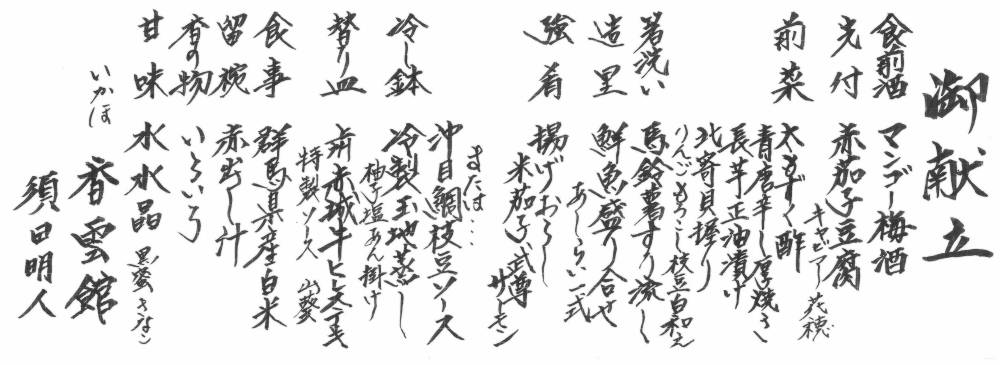 御献立
食前酒 マンゴー梅酒
先付 赤茄子豆腐
キャビア 花穂
前菜 太もずく酢
青唐辛し厚焼き
長芋正油漬け
北寄貝握り
りんごもろこし枝豆白和え
箸洗い 馬鈴薯すり流し
造里 鮮魚盛り合せ
あしらい一式
強肴 揚げおろし
米茄子 武尊サーモン
または…
沖目鯛枝豆ソース
冷し鉢 冷製玉地蒸し
柚子塩あん掛け
替り皿 赤城牛ヒレステーキ
特製ソース 山葵
食事 群馬県産白米
留椀 赤出し汁
香の物 いろいろ
甘味 水水晶 黒蜜きなこ
いかほ
香雲館
須田明人